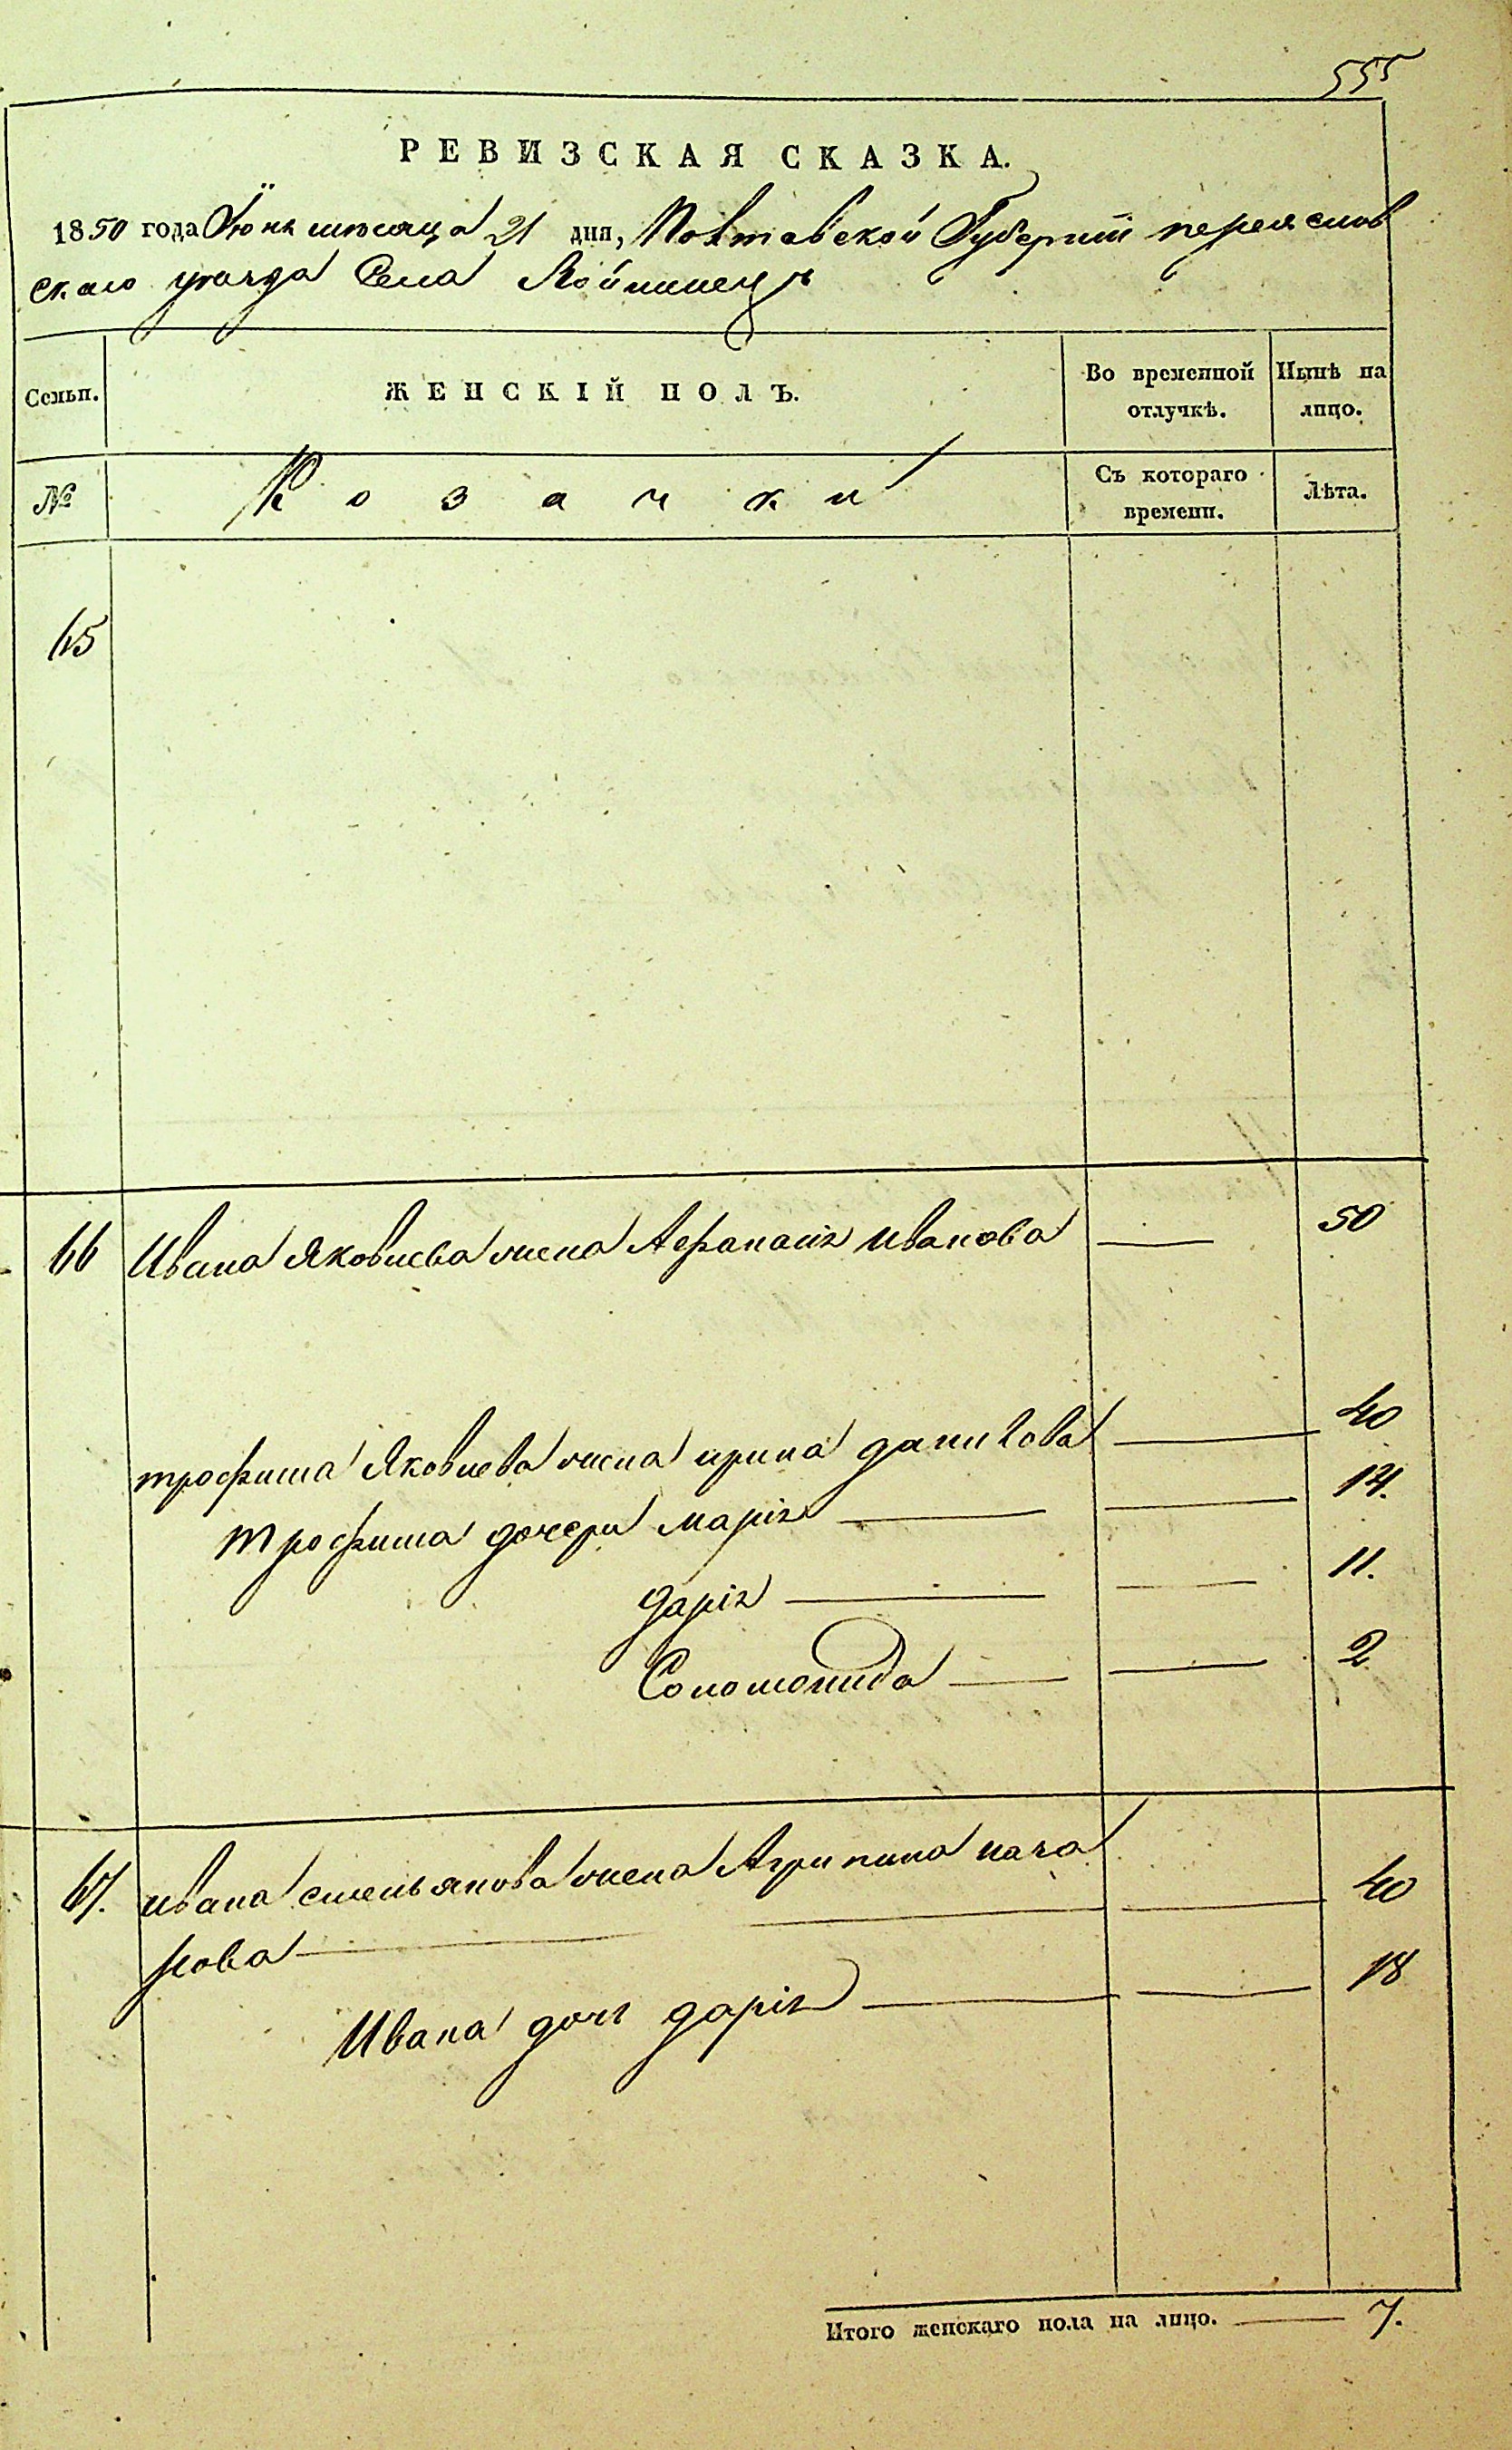 555
РЕВИЗСКАЯ СКАЗКА.
1850 года Їюня месяца 21 дня, Полтавской Губернии переяслов
скаго уезда Села Войтовецъ
Семьи.
ЖЕНСКІЙ ПОЛЪ.
Во временной отлучкѣ.
Нынѣ на лицо.
№
Козачки
Съ котораго времени.
Лѣта.
65
66 Ивана Яковлева жена Афанасія Иванова — 50
трофима Яковлева жена ирина данилова — 40
Трофима дочери марія — 14.
дарія — 11.
Соломонида — 2
67. ивана емельянова жена Агрипина наза
рова — 40
Ивана дочь дарія — 18
Итого женскаго пола на лицо. — 7.